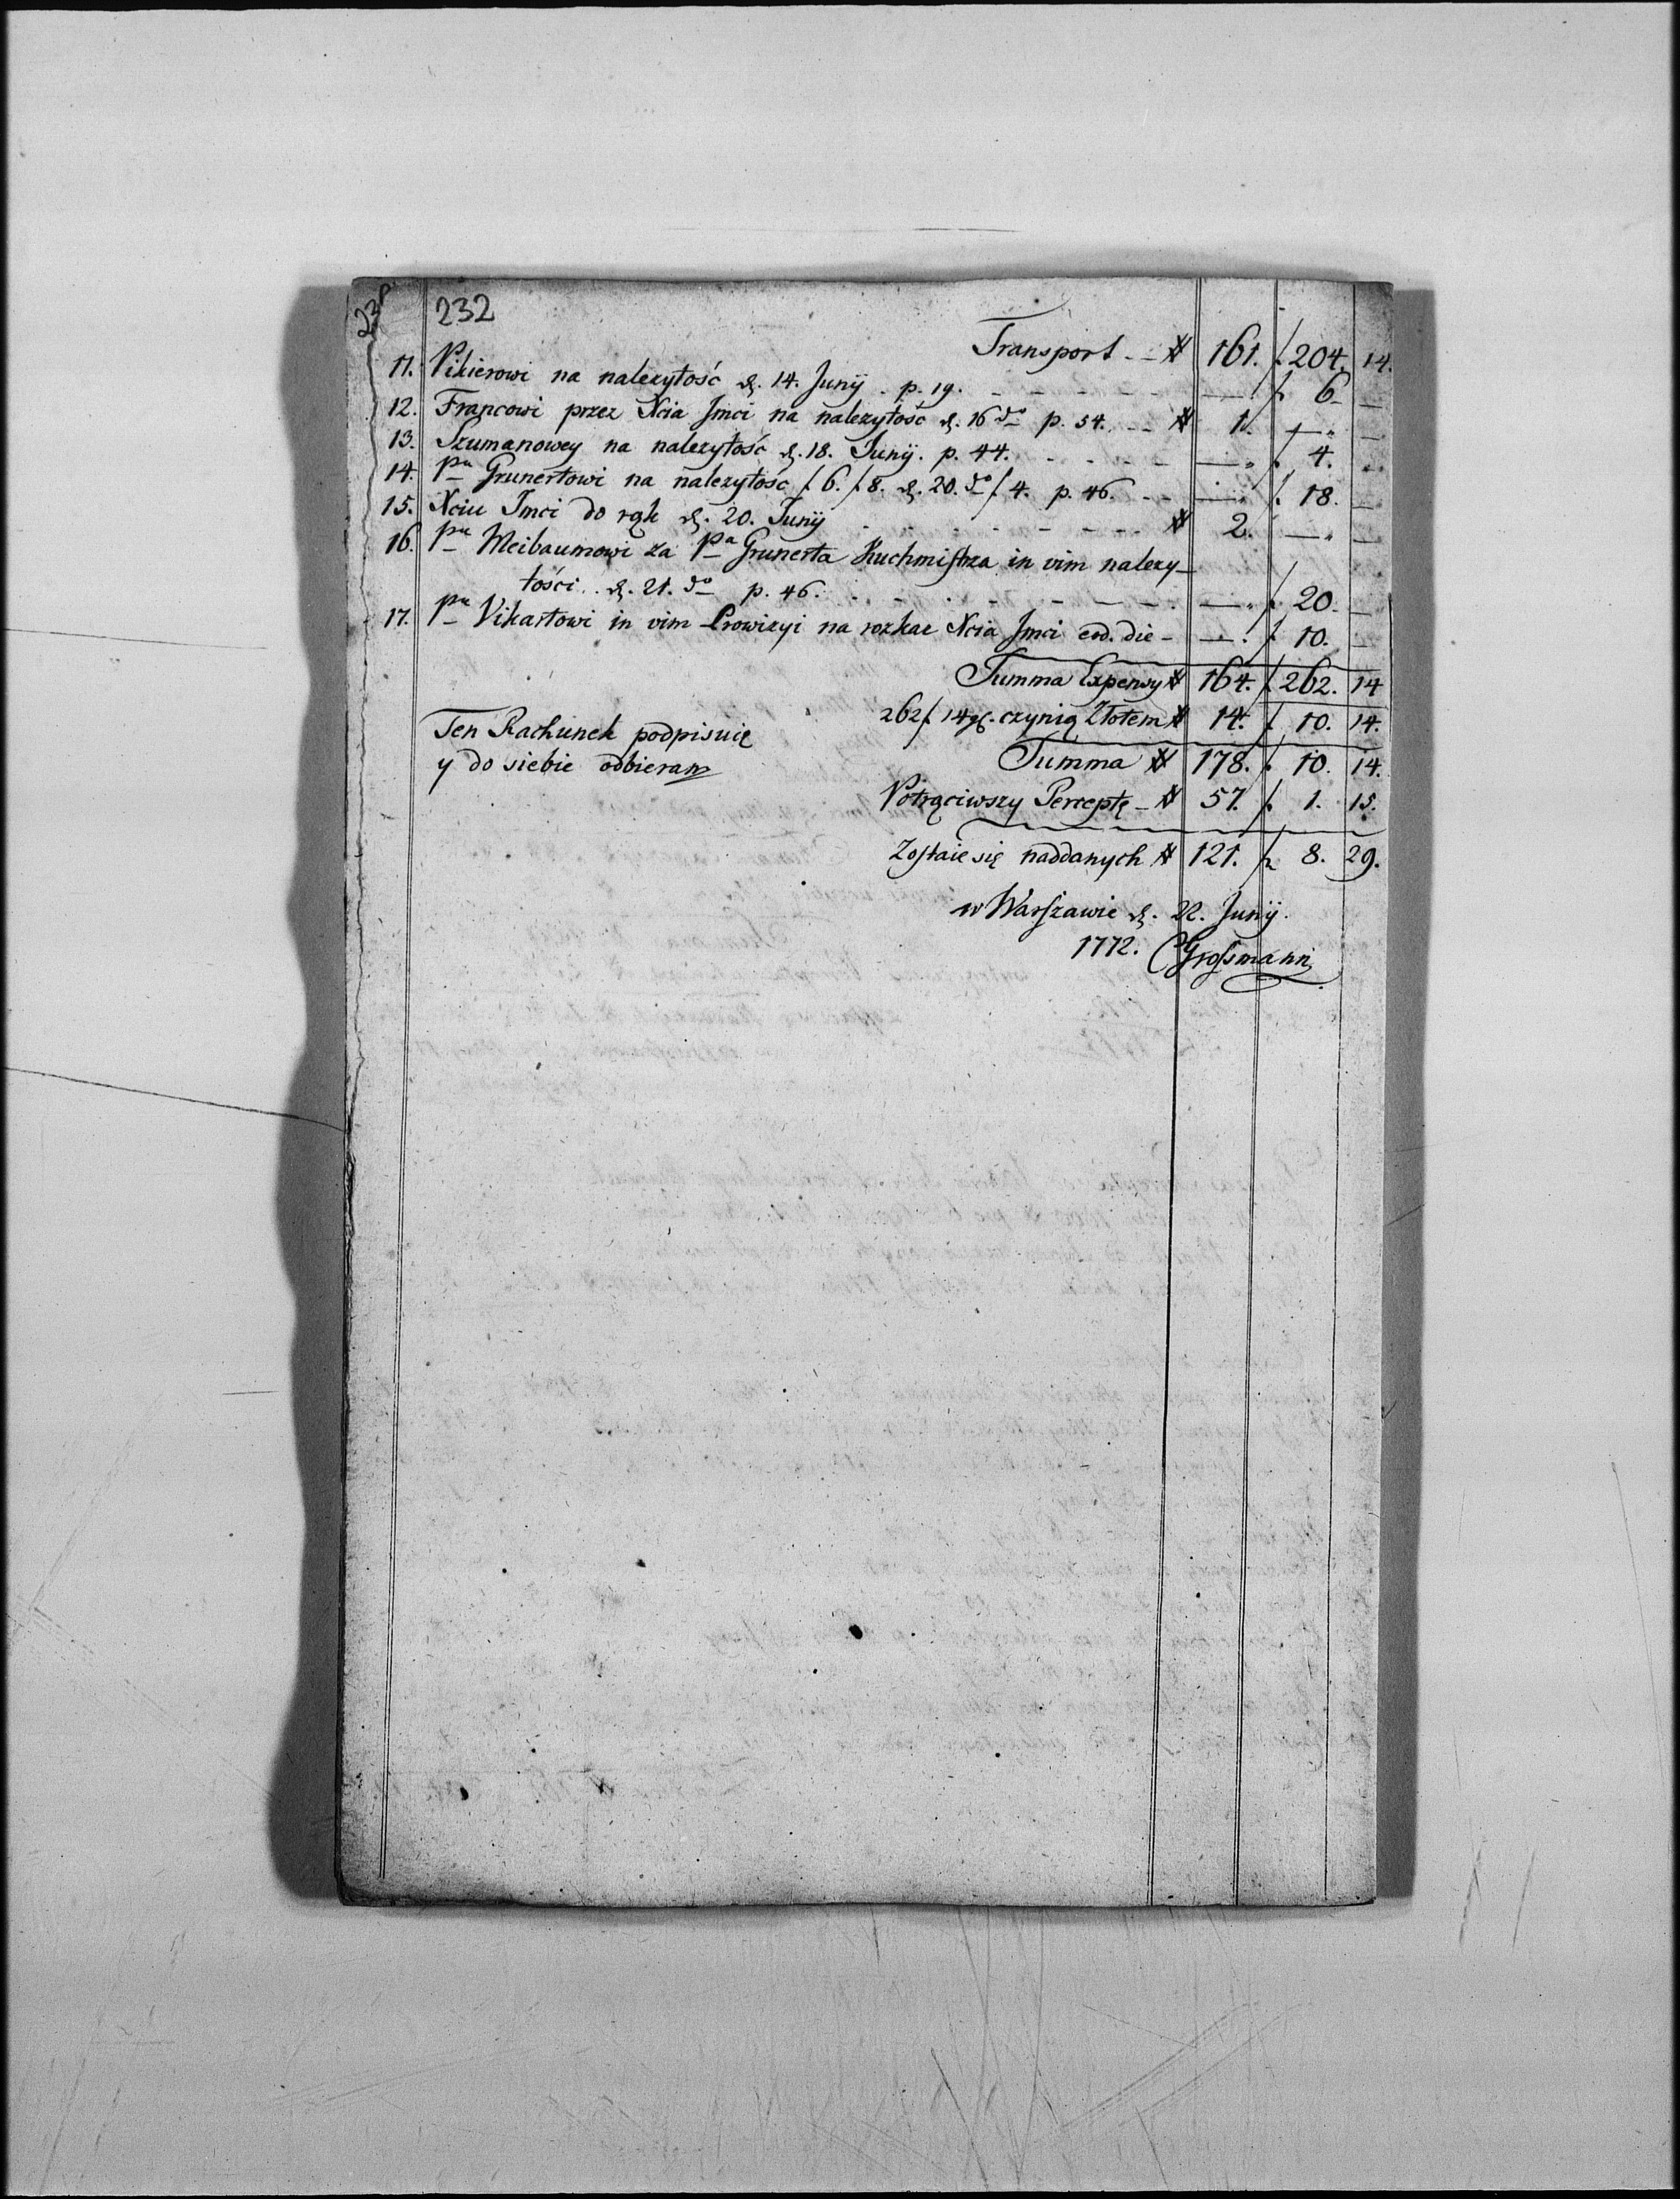 232
Transport # 161. f 204. 14.
11. Vikierowi na należytość d. 14. Junij. p. 19. — f 6 —
12. Francowi przez Xcia Jmci na należytość d. 16 do p. 54. # 1. — —
13. Szumanowey na należytość d. 18. Junij. p. 44. — f. 4. —
14. Pu Grunertowi na należytość f. 6. f 8. d. 20. do f. 4. p. 46. — f. 18. —
15. Xciu Jmci do rąk d. 20. Junij # 2. — —
16. Pu Meibaumowi za Pa Grunerta Kuchmistrza in vim należy-
tości. d. 21. do p. 46. — f. 20. —
17. Pu Vikartowi in vim Prowizyi na rozkaz Xcia Jmci eod. die — f. 10. —
Summa Expensy # 164. f. 262. 14
262 f. 14 gl. czynią Złotem # 14. f. 10. 14.
Ten Rachunek podpisuię
Summa # 178. f. 10. 14.
y do siebie odbieram
Potrąciwszy Perceptę # 57. f. 1. 15.
Zostaie się naddanych # 121. f 8. 29.
w Warszawie d. 22. Junij.
1772. Grossmann